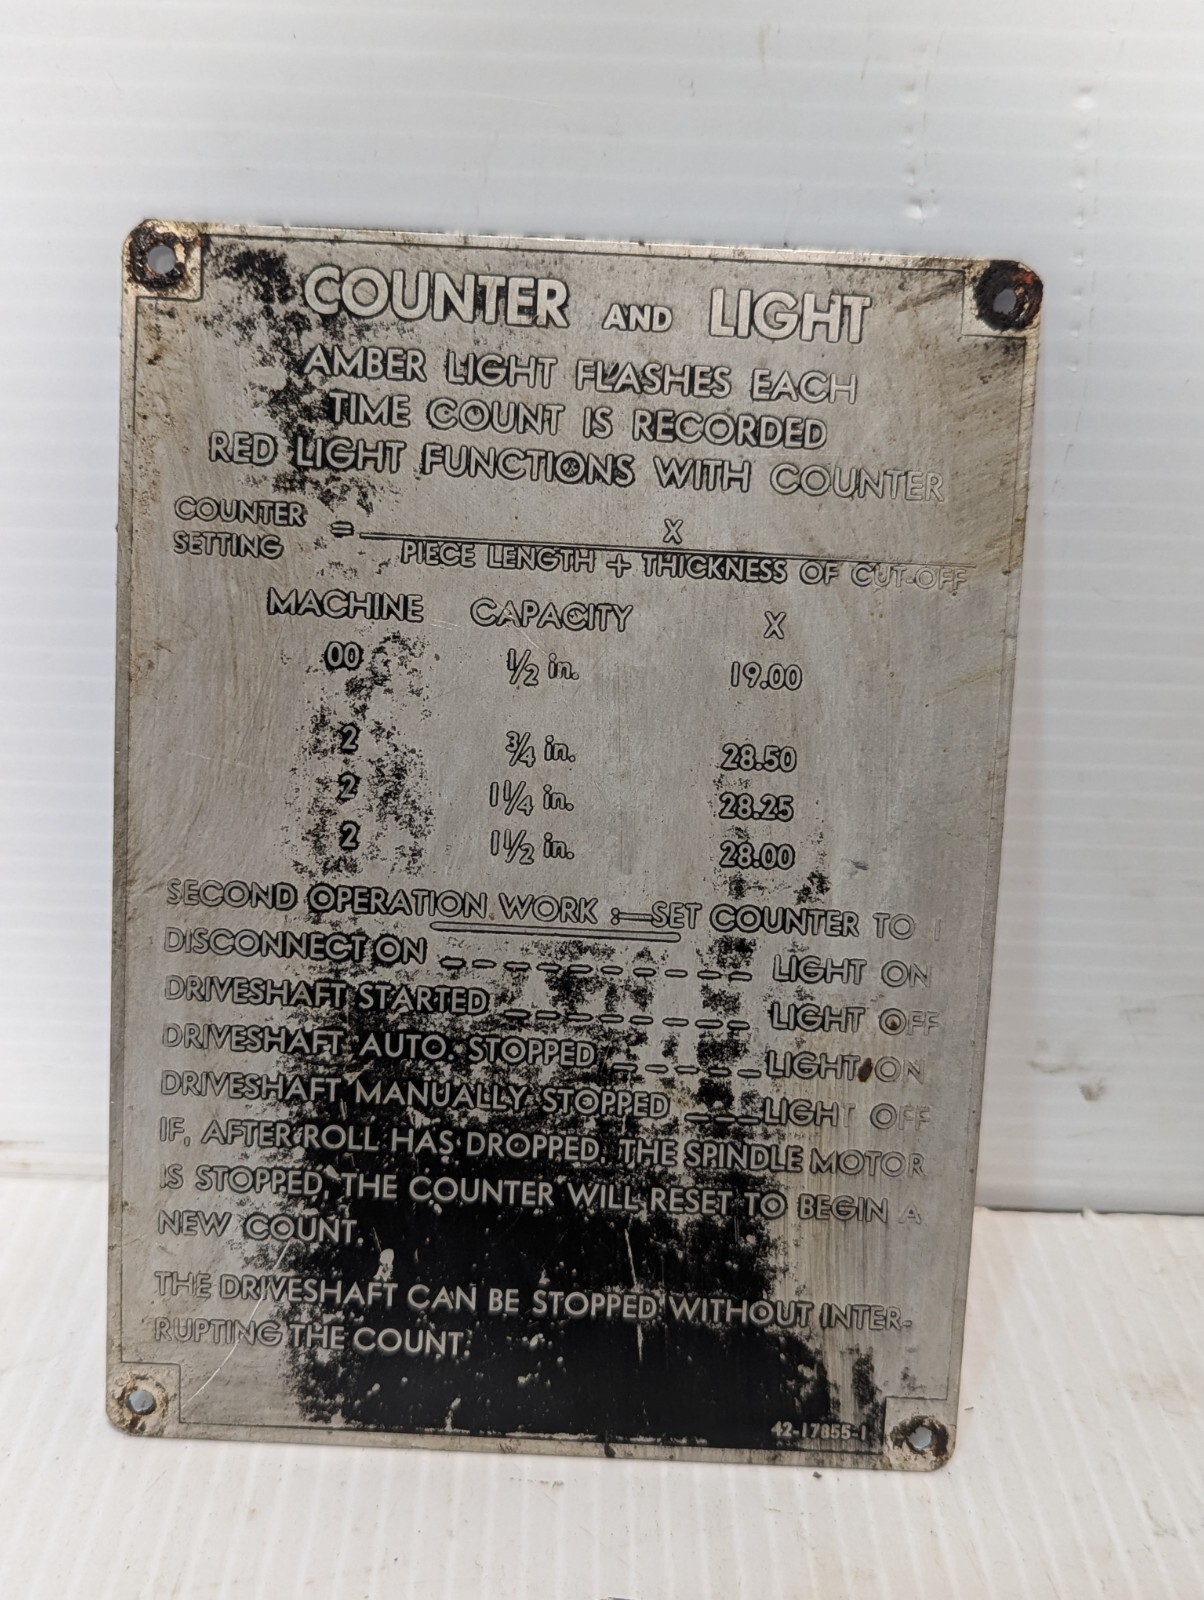 COUNTER AND LIGHT
AMBER LIGHT FLASHES EACH
TIME COUNT IS RECORDED
RED LIGHT FUNCTIONS WITH COUNTER
COUNTER SETTING = X
PIECE LENGTH + THICKNESS OF CUT-OFF
MACHINE CAPACITY X
00 1/2 in. 19.00
2 3/4 in. 28.50
2 1 1/4 in. 28.25
2 1 1/2 in. 28.00
SECOND OPERATION WORK :—SET COUNTER TO 1
DISCONNECT ON _ _ _ _ _ _ _ _ _ _ LIGHT ON
DRIVESHAFT STARTED _ _ _ _ _ _ _ _ LIGHT OFF
DRIVESHAFT AUTO. STOPPED _ _ _ _ _ LIGHT ON
DRIVESHAFT MANUALLY STOPPED _ _ _ LIGHT OFF
IF, AFTER ROLL HAS DROPPED, THE SPINDLE MOTOR
IS STOPPED, THE COUNTER WILL RESET TO BEGIN A
NEW COUNT.
THE DRIVESHAFT CAN BE STOPPED WITHOUT INTER-
RUPTING THE COUNT.
42-17855-1